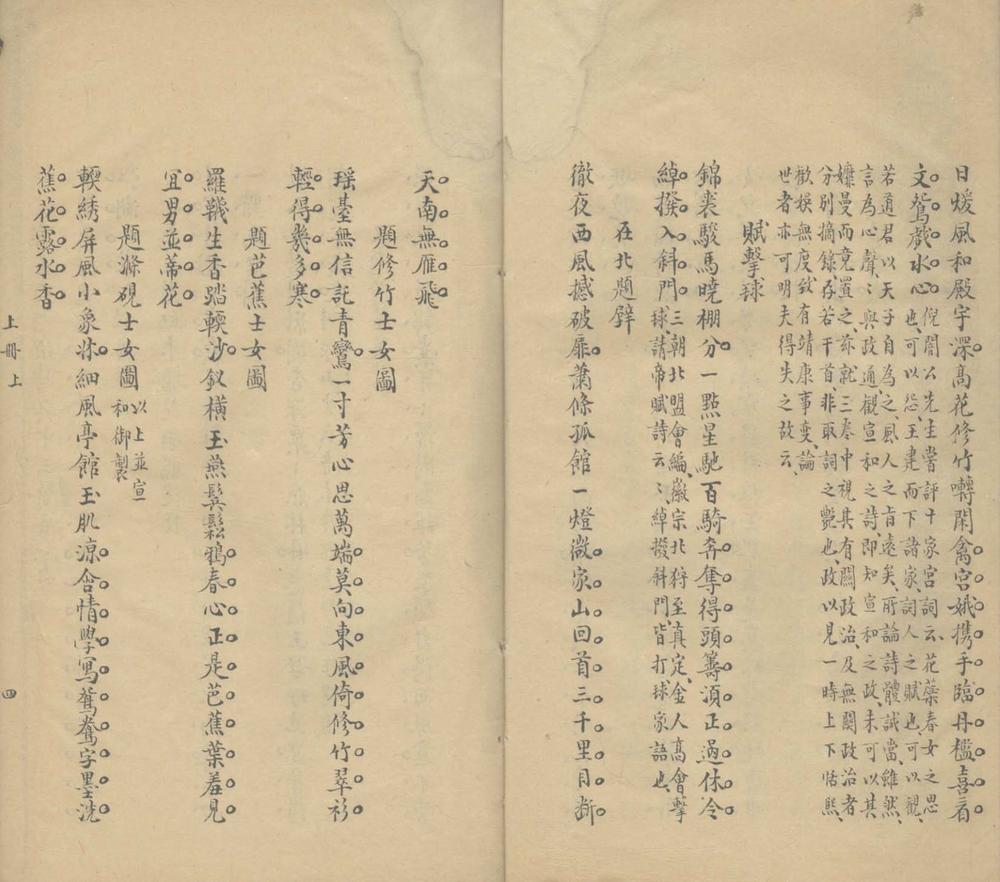 日煖風和殿宇深高花修竹囀閑禽宮娥携手臨丹檻喜看
文鴛戲水心
倪誾公先生嘗評十家宮詞云花蘂春女之思
也可以怨王建而下諸家詞人之賦也可以觀
若道君以天子自為之風人之旨遠矣所論詩體誠當雖然
言為心聲〻與政通觀宣和之詩即知宣和之政未可以其
孅曼而竟置之茲就三卷中視其有關政治及無關政治者
分別摘錄存若干首非取詞之艷也政以見一時上下恬熙
歡娛無度致有靖康事變論
世者亦可明夫得失之故云
賦擊毬
錦裘駿馬曉棚分一點星馳百騎奔奪得頭籌須正過休令
綽撥入斜門
三朝北盟會編徽宗北狩至真定金人高會擊
球請帝賦詩云〻綽撥斜門皆打球家語也
在北題壁
徹夜西風撼破扉蕭條孤館一燈微家山回首三千里目斷
天南無雁飛
題修竹士女圖
瑤臺無信託青鸞一寸芳心思萬端莫向東風倚修竹翠衫
輕得幾多寒
題芭蕉士女圖
羅韈生香踏輭沙釵橫玉燕鬂鬆鴉春心正是芭蕉葉羞見
宜男並蒂花
題滌硯士女圖
以上並宣
和御製
輭綉屏風小象牀細風亭館玉肌凉含情學寫鴛鴦字墨洗
蕉花露水香
上冊上
四